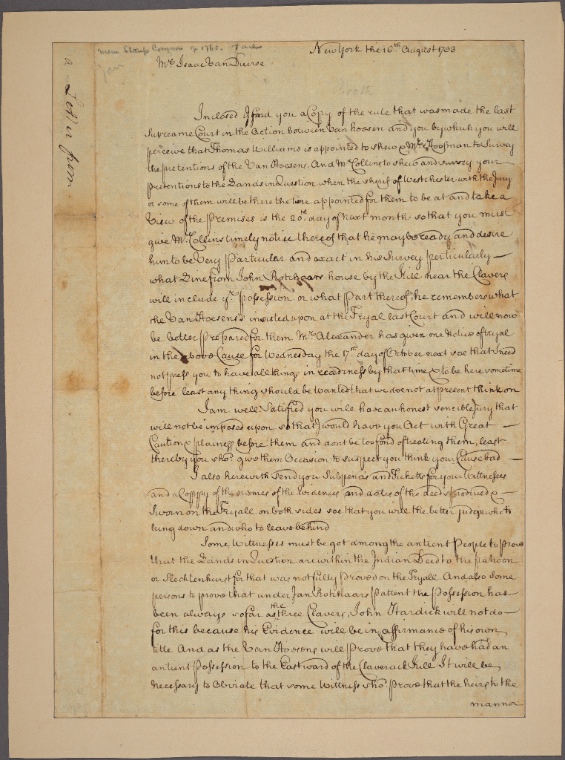 New York the 16th August 1733
Mr Isaac Van Duerse
a Letter from
Inclosed I send you a Copy of the rule that was made the last
Supreame Court in the action between Van hoesen and you by which you will
perceive that Thomas Williams is appointed to shew & Mr Hoofman to Survey
the pretentions of the Van Hoesens. And Mr Collins to shew and survey your
pretentions to the Lands in Question when the sherif of Westchester with the Jury
or some of them will be there the time appointed for them to be at and take a
View of the Premises is the 20th day of next month so that you must
give Mr Collins timely notice thereof that he may be ready and desire
him to be Very Particular and exact in his Survey particularly
what Line from John Rotchaars house by the Kill near the Clavers
will include yr Possession or what Part thereof he remembers what
the Van Hoesens insisted upon at the Tryal last Court and will now
be better prepared for them Mr Alexander has given me Notice of tryal
in the above Cause for Wednesday the 17th day of October next soe that I need
not press you to have all things in readiness by that time & to be here sometime
before least any thing should be wanted that we doe not at present think on
I am well Satisfied you will have an honest sencible Jury that
will not be imposed upon so that I would have you Act with Great
Caution & plainess before them and dont be too fond of treating them, least
thereby you shod give them Occasion to suspect you think your Cause bad
I also herewith Send you Subpenas and Tickets for your Witnesses
and a Coppy of the names of the Evidences and also of the deeds produced &
Sworn on the Tryall on both sides soe that you will the better judge who to
bring down and who to leave behind
Some Witnesses must be got among the antient People to prove
that the Lands in Question are within the Indian Deed to the patroon
or Slechtenhurst for that was not fully Proved on the Tryall. And also some
persons to prove that under Jan Rotthaars Pattent the Possession has
been always so far as the three Clavers, John Hardick will not do
for this because his Evidence will be in affirmance of his own
title And as the Van Hoesens will prove that they have had an
antient Possession to the Eastward of the Claverack Kill It will be
necessary to obviate that some Wittness shod prove that the heirs to the
mannor